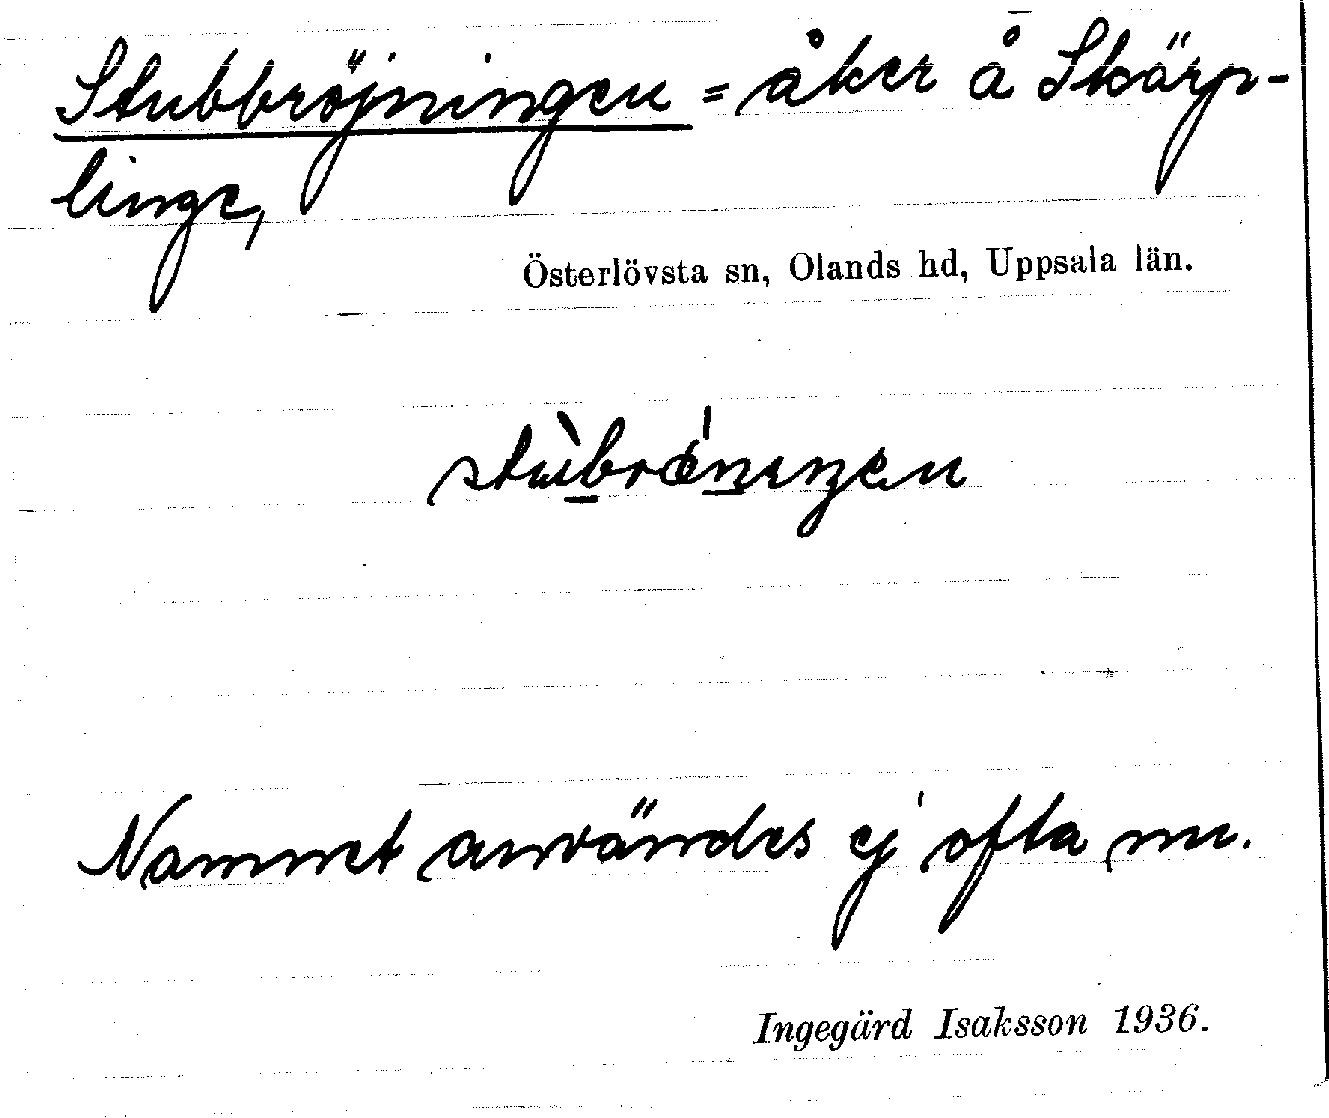 Stubbröjningen = åker å Skärp-
linge,
Österlövsta sn, Olands hd, Uppsala län.
Namnet användes ej ofta nu.
Ingegärd Isaksson 1936.